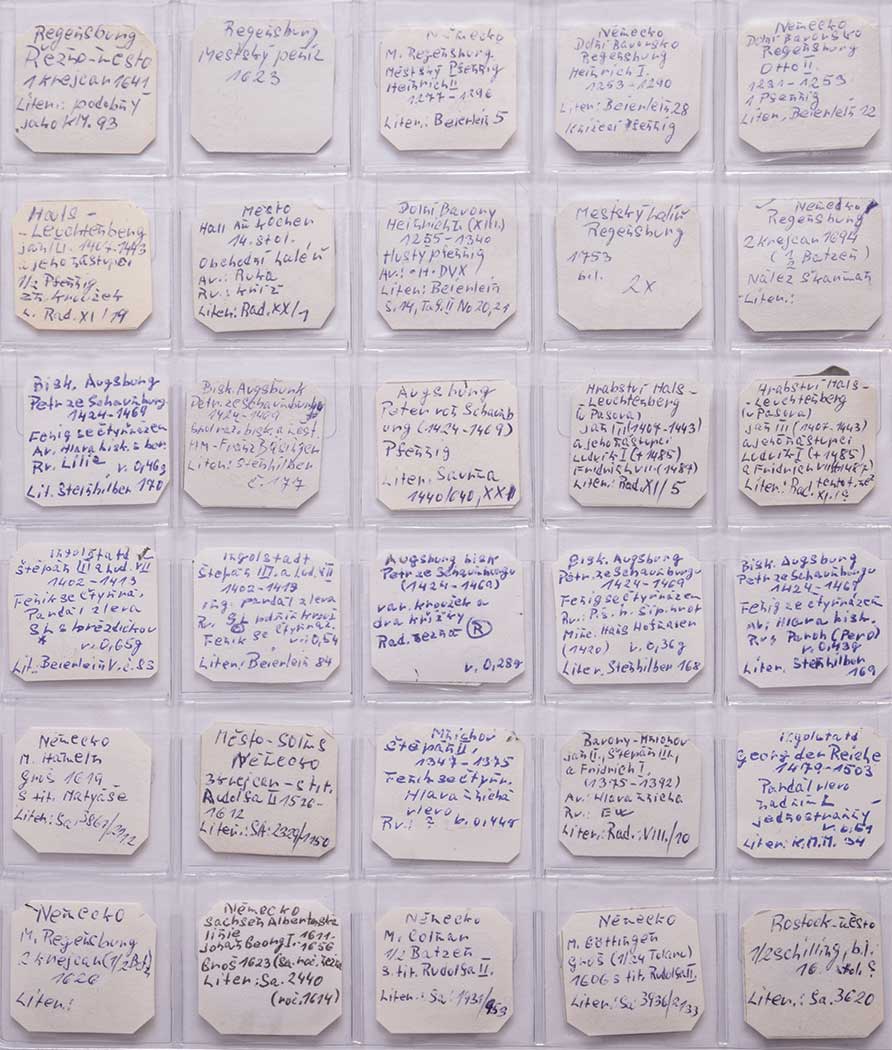 Regensburg
Řezno-město
1 krejcar 1641
Liter.: podobný
jako KM. 93
Regensburg
Městský peníz
1623
Německo
M. Regensburg
Městský Pfennig
Heinrich II
1277-1296
Liter.: Beierlein 5
Německo
Dolní Bavorsko
Regensburg
Heinrich I.
1253-1290
Liter.: Beierlein 28
Pfennig
Německo
Dolní Bavorsko
Regensburg
Otto II.
1231-1253
1 Pfennig
Liter. Beierlein 12
Hals -
-Leuchtenberg
Jan III. 1407-1443
a jeho nástupci
1/2 Pfennig
zn. kroužek
L. Rad. XI/19
Město
Hall am Kochen
14. stol.
Obchodní haléř
Av.: Ruka
Rv.: kříž
Liter: Rad. XX/1
Dolní Bavory
Heinrich I (XIII.)
1255-1340
tlustý pfennig
Av.: •H•DVX
Liter.: Beierlein
s. 14, Taf. II No 20,21
Městský haléř
Regensburg
1753
bil.
2x
Německo
Regensburg
2 krejcar 1694
(1/2 Batzen)
Nález
Liter.:
Bisk. Augsburg
Petr ze Schaunburgu
1424-1469
Fenig se čtyrrázem
Av. Hlava bisk. s ber.
Rv. Lilie v. 0,46g
Lit. Steinhilber 170
Bisk. Augsburk
Petr ze Schaunburgu
1424-1469
MM-Franz Bäsinger
Liter: Steinhilber
č. 177
Augsburg
Peter von Schaumb
urg (1424-1469)
Pfennig
Liter. Saurma
1440/640, XXI
Hrabství Hals-
-Leuchtenberg
(u Pasova)
Jan III (1407-1443)
a jeho nástupci
Ludvík I (+1485)
Fridrich VII (1487)
Liter: Rad. XI/5
Hrabství Hals-
-Leuchtenberg
(u Pasova)
Jan III (1407-1443)
a jeho nástupci
Ludvík I (+1485)
a Fridrich VII (+1487)
Liter: Rad.
XI.
Ingolstatd
Štěpán III a Lud. VII
1402-1413
Feník se čtyrrá.
Pardál zleva
v. 0,65g
Lit. Beierlein V. č. 83
Ingolstadt
Štěpán III. a Lud. VII
1402-1413
Ing. pardál zleva
Feník se čtyrráz.
v. 0,54
Liter: Beierlein 84
Augsburg bisk
Petr ze Schaumburgu
(1424-1469)
var. kroužek a
dva křížky
Rad. nezná (R)
v. 0,28g
Bisk. Augsburg
Petr ze Schaunburgu
1424-1469
Fenig se čtyrrázem
Minc. Hans Hofnasen
(1420) v. 0,36g
Liter. Steinhilber 168
Bisk. Augsburg
Petr ze Schaunburgu
1424-1469
Fenig ze čtyrrázem
Av: Hlava bisk.
Rv: Paroh (Pero)
v. 0,43g
Liter. Steinhilber
169
Německo
M. Hameln
Groš 1619
s tit. Matyáše
Liter: Sa.
Město-Solms
Německo
3 krejcar-s tit.
Rudolfa II 1576-
1612
Liter: SA: 2329/1150
Mnichov
Štěpán II,
1347-1375
Feník se čtyrr.
Hlava mnicha
vlevo
Rv: ? v. 0,44g
Bavory-Mnichov
Jan II, Štěpán III,
a Fridrich I,
(1375-1392)
Av: Hlava mnicha
Rv.: EW
Liter: Rad: VIII./10
Ingolstatd
Georg der Reiche
1479-1503
Pardál vlevo
nad ním L
jednostranný
v. 0,61
Liter: K.M.M. 34
Německo
M. Regensburg
2 krejcar (1/2 Batz)
1626
Liter:
Německo
Sachsen Albertinská
linie 1611-
Johan Georg I. 1656
Groš 1623 (Sa. roč. nezná
Liter: Sa. 2440
(roč. 1614)
Německo
M. Colmar
1/2 Batzen
s. tit. Rudolfa II.
Liter.: Sa: 1931/953
Německo
M. Göttingen
Groš (1/24 Tolaru)
1606 s tit. Rudolfa II.
Liter: Sa: 3936/2133
Rostock-město
1/2 schilling, b.l.
16. stol. ?
Liter.: Sa. 3620